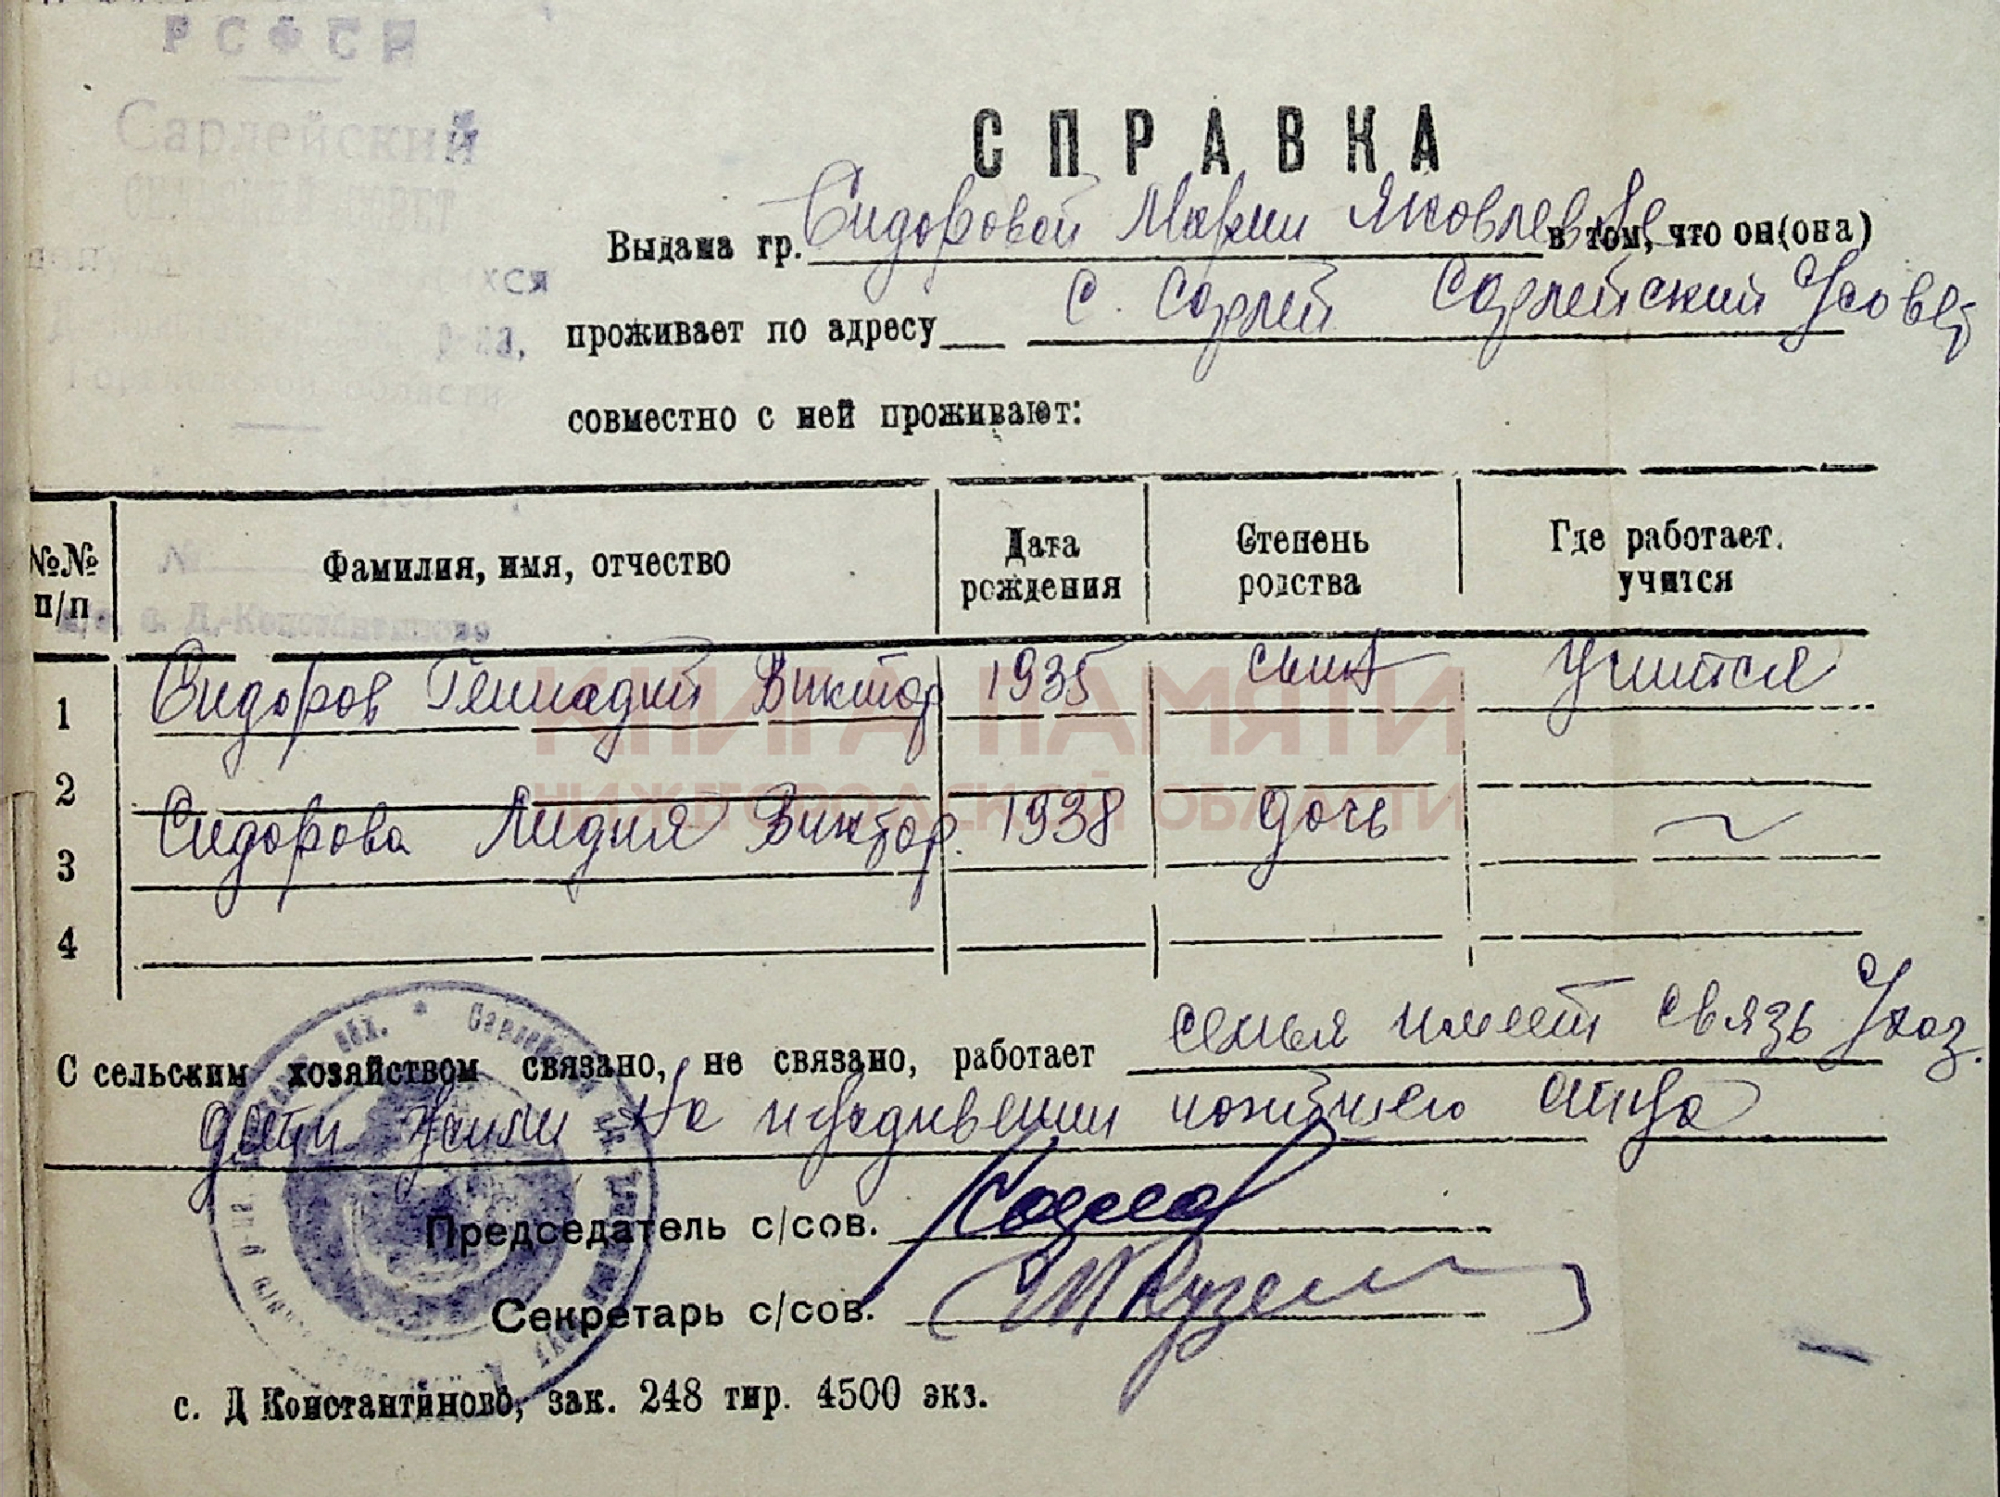 РСФСР
Сарлейский
СЕЛЬСКИЙ СОВЕТ
р-на,
Горьковской области
№
п/о. с. Д.-Константиново
СПРАВКА
Выдана гр. Сидоровой Марии Яковлевне в том, что он(она)
проживает по адресу с. Сарлей Сарлейский с/совет
совместно с ней проживают:
№№ п/п Фамилия, имя, отчество Дата рождения Степень родства Где работает. учится
1 Сидоров Геннадий Виктор 1935 сын Учится
2
Сидорова Лидия Виктор. 1938 дочь ~
3
4
С сельским хозяйством связано, не связано, работает семья имеет связь с/хоз.
дети жили на иждивении погибшего отца
Председатель с/сов.
Секретарь с/сов.
с. Д Константиново, зак. 248 тир. 4500 экз.
КНИГА ПАМЯТИ
НИЖЕГОРОДСКОЙ ОБЛАСТИ